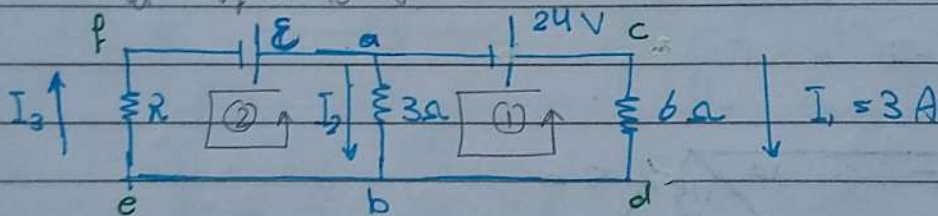 f ℰ a 24V c
I₃ R ② I₂ 3Ω ① 6Ω I₁ = 3 A
e b d